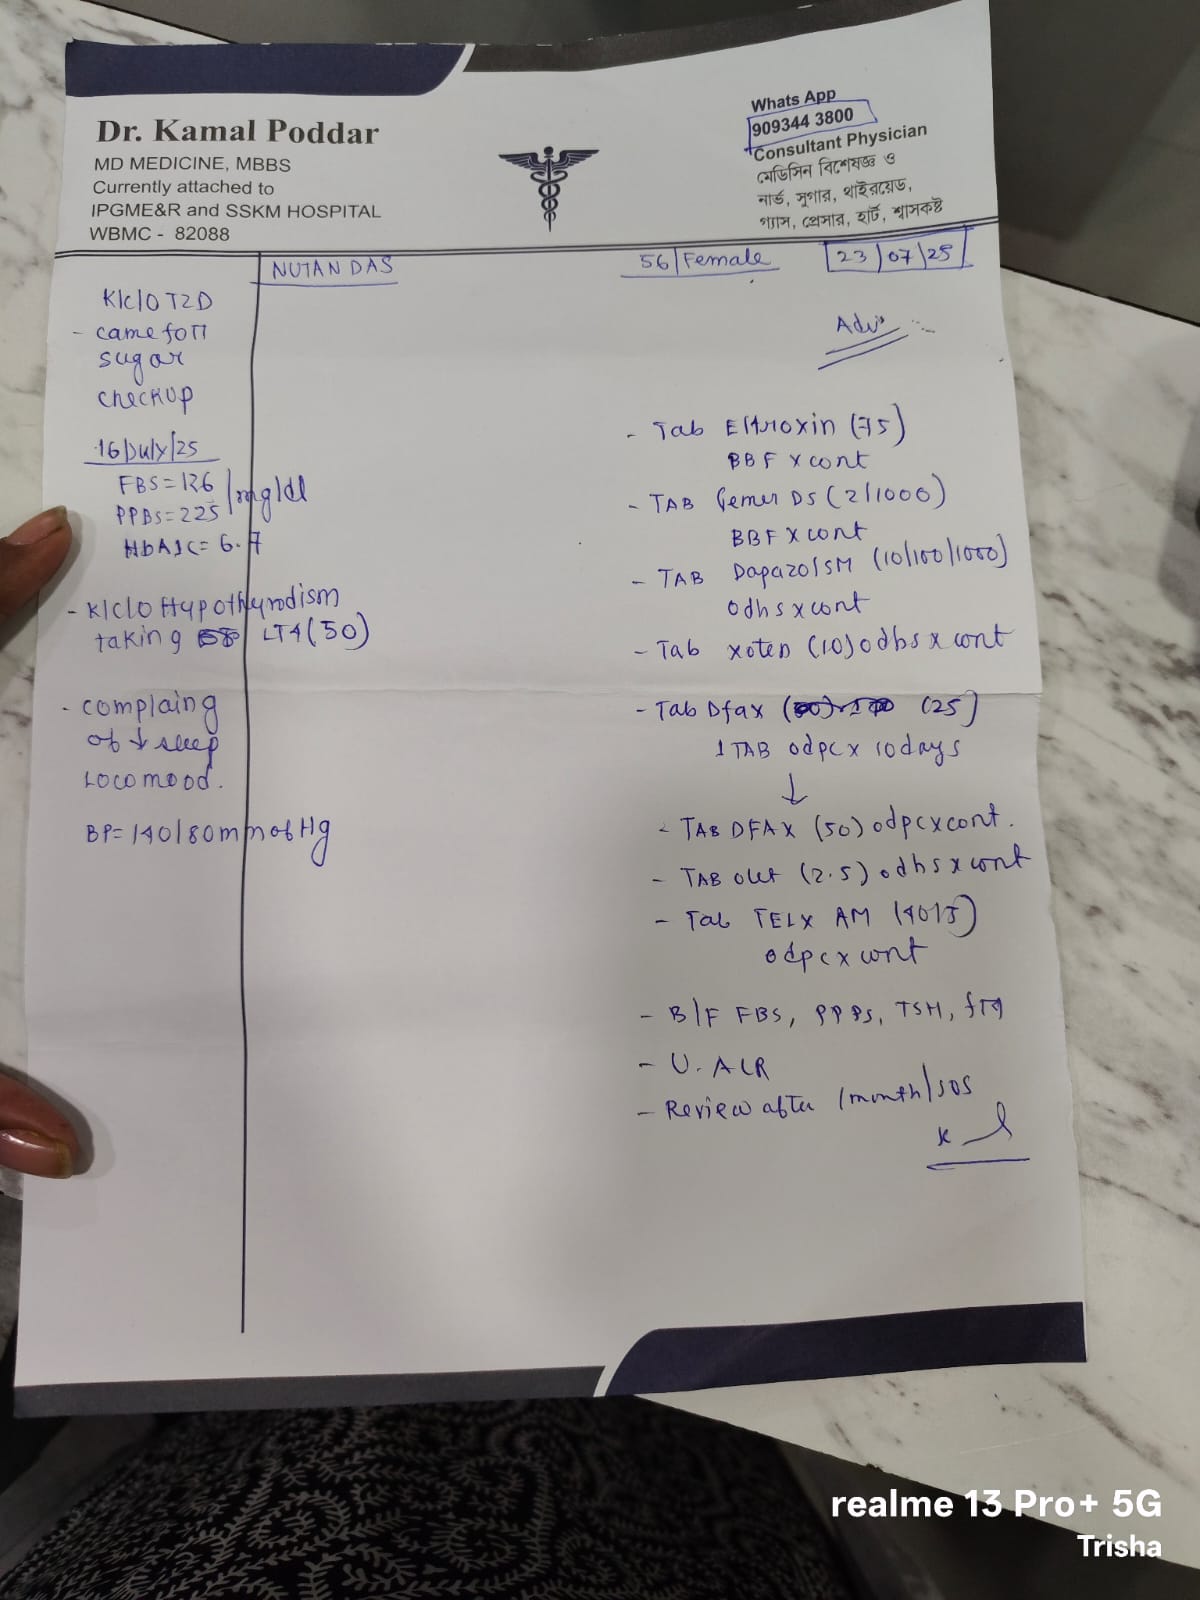 Dr. Kamal Poddar
MD MEDICINE, MBBS
Currently attached to
IPGME&R and SSKM HOSPITAL
WBMC - 82088
Whats App
909344 3800
Consultant Physician
মেডিসিন বিশেষজ্ঞ ও
নার্ভ, সুগার, থাইরয়েড,
গ্যাস, প্রেসার, হার্ট, শ্বাসকষ্ট
NUTAN DAS
56/Female
23/07/25
K/c/o T2D
- came for
sugar
checkup
16/July/25
FBS = 126
PPBS = 225 /mg/dl
HbA1C = 6.7
- K/c/o Hypothyrodism
taking LT4 (50)
- complaing
of ↓ sleep
Low mood.
BP = 140/80 mm of Hg
Adv:
- Tab Eltroxin (75)
BBF x cont
- TAB Gemer DS (2/1000)
BBF x cont
- TAB Dapazol SM (10/100/1000)
odhs x cont
- Tab xoten (10) odhs x cont
- Tab Dfax (25)
1 TAB odpc x 10 days
↓
- TAB DFAX (50) odpc x cont.
- TAB Olet (2.5) odhs x cont
- Tab TELX AM (40/5)
odpc x cont
- B/F FBS, PPBS, TSH, fT4
- U. ACR
- Review after 1 month/SOS
realme 13 Pro+ 5G
Trisha